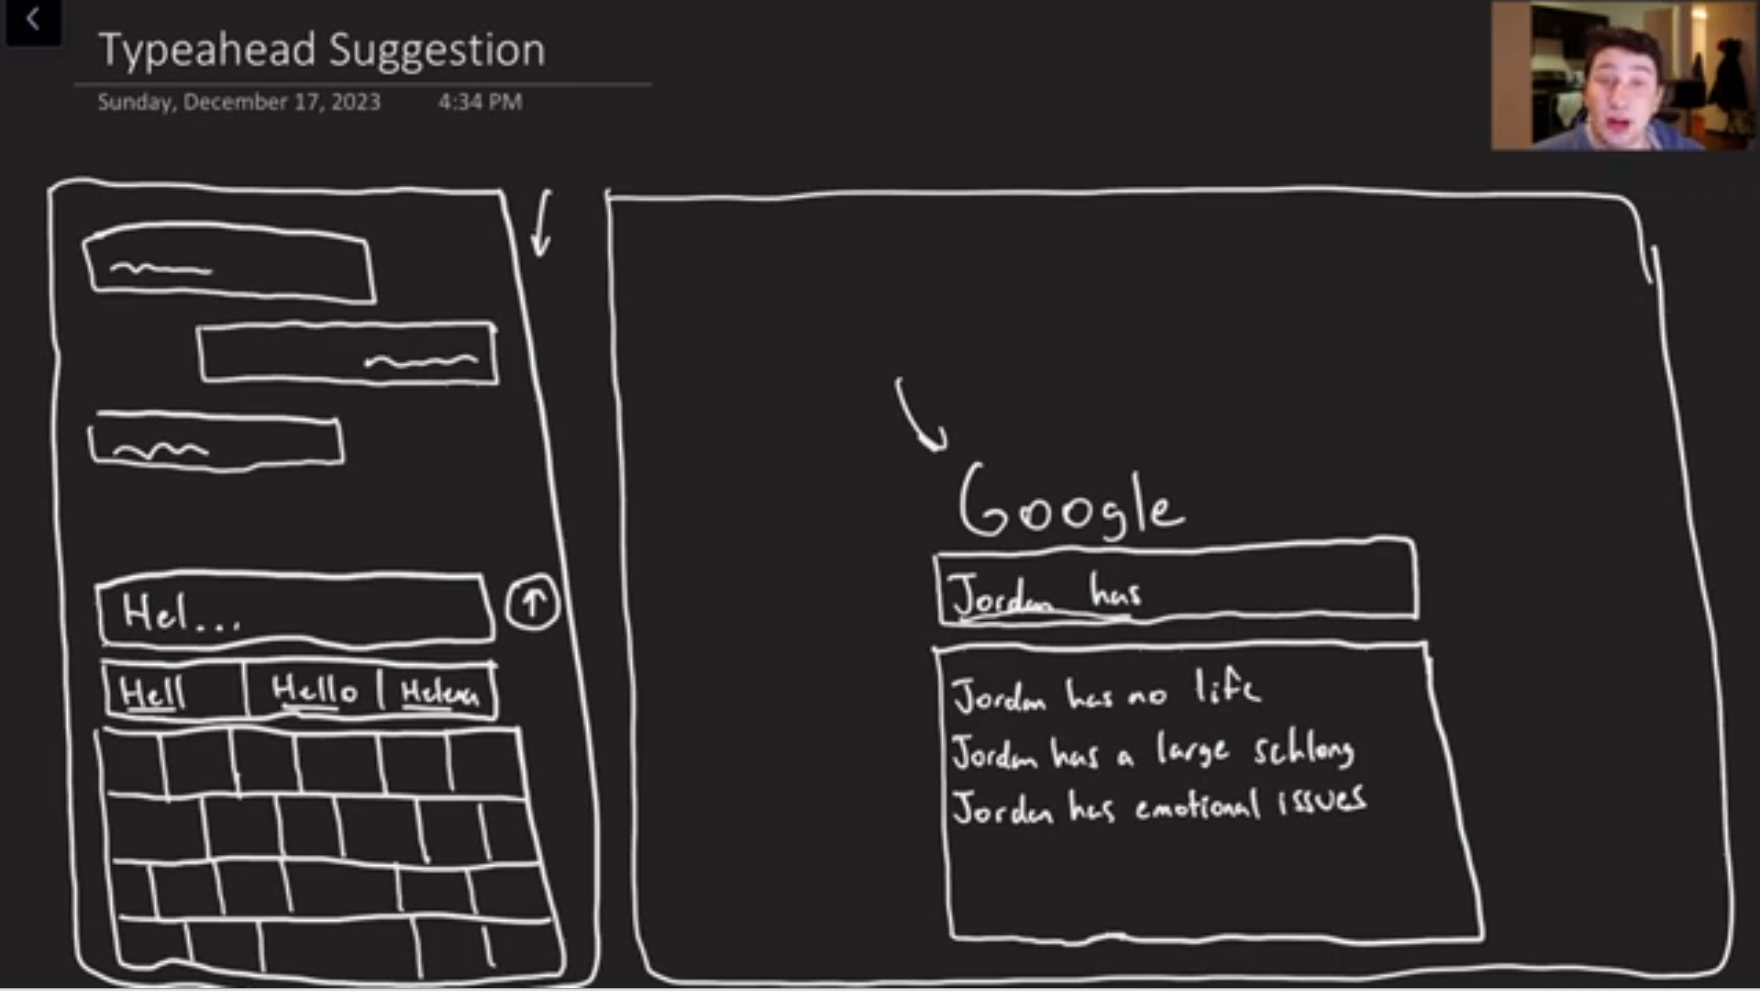 Typeahead Suggestion
Sunday, December 17, 2023 4:34 PM
Hel...
Hell Hello Helena
Google
Jordan has
Jordan has no life
Jordan has a large schlong
Jordan has emotional issues